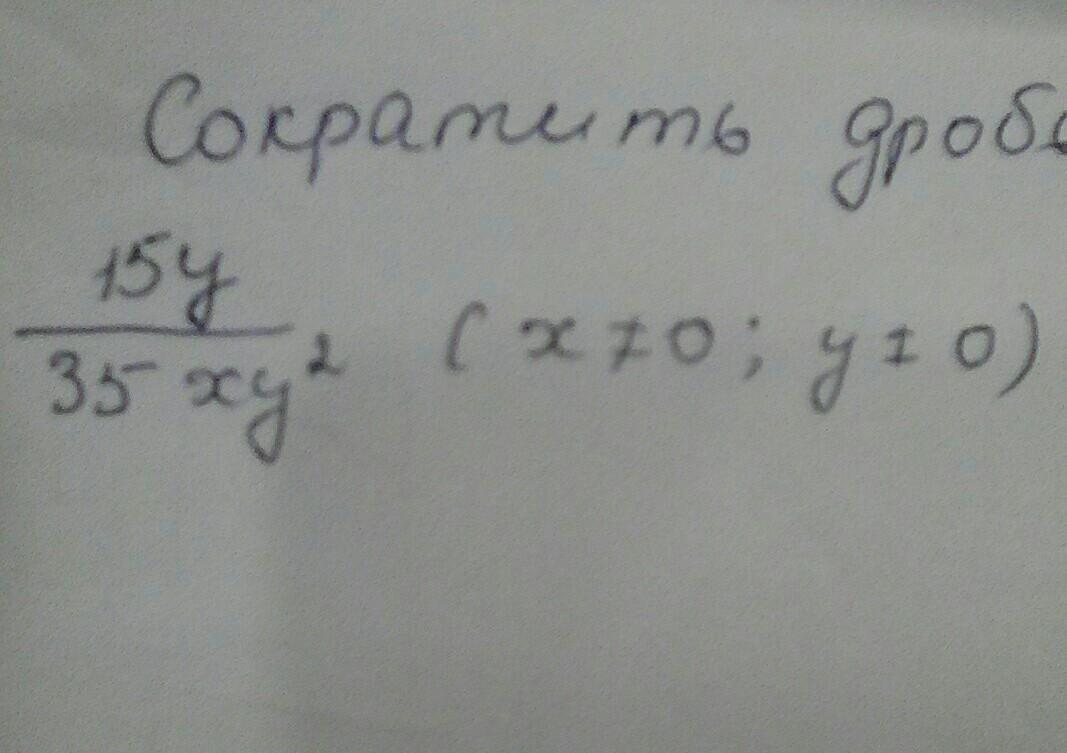 Сократить дробь
15y
35xy² (x≠0; y≠0)